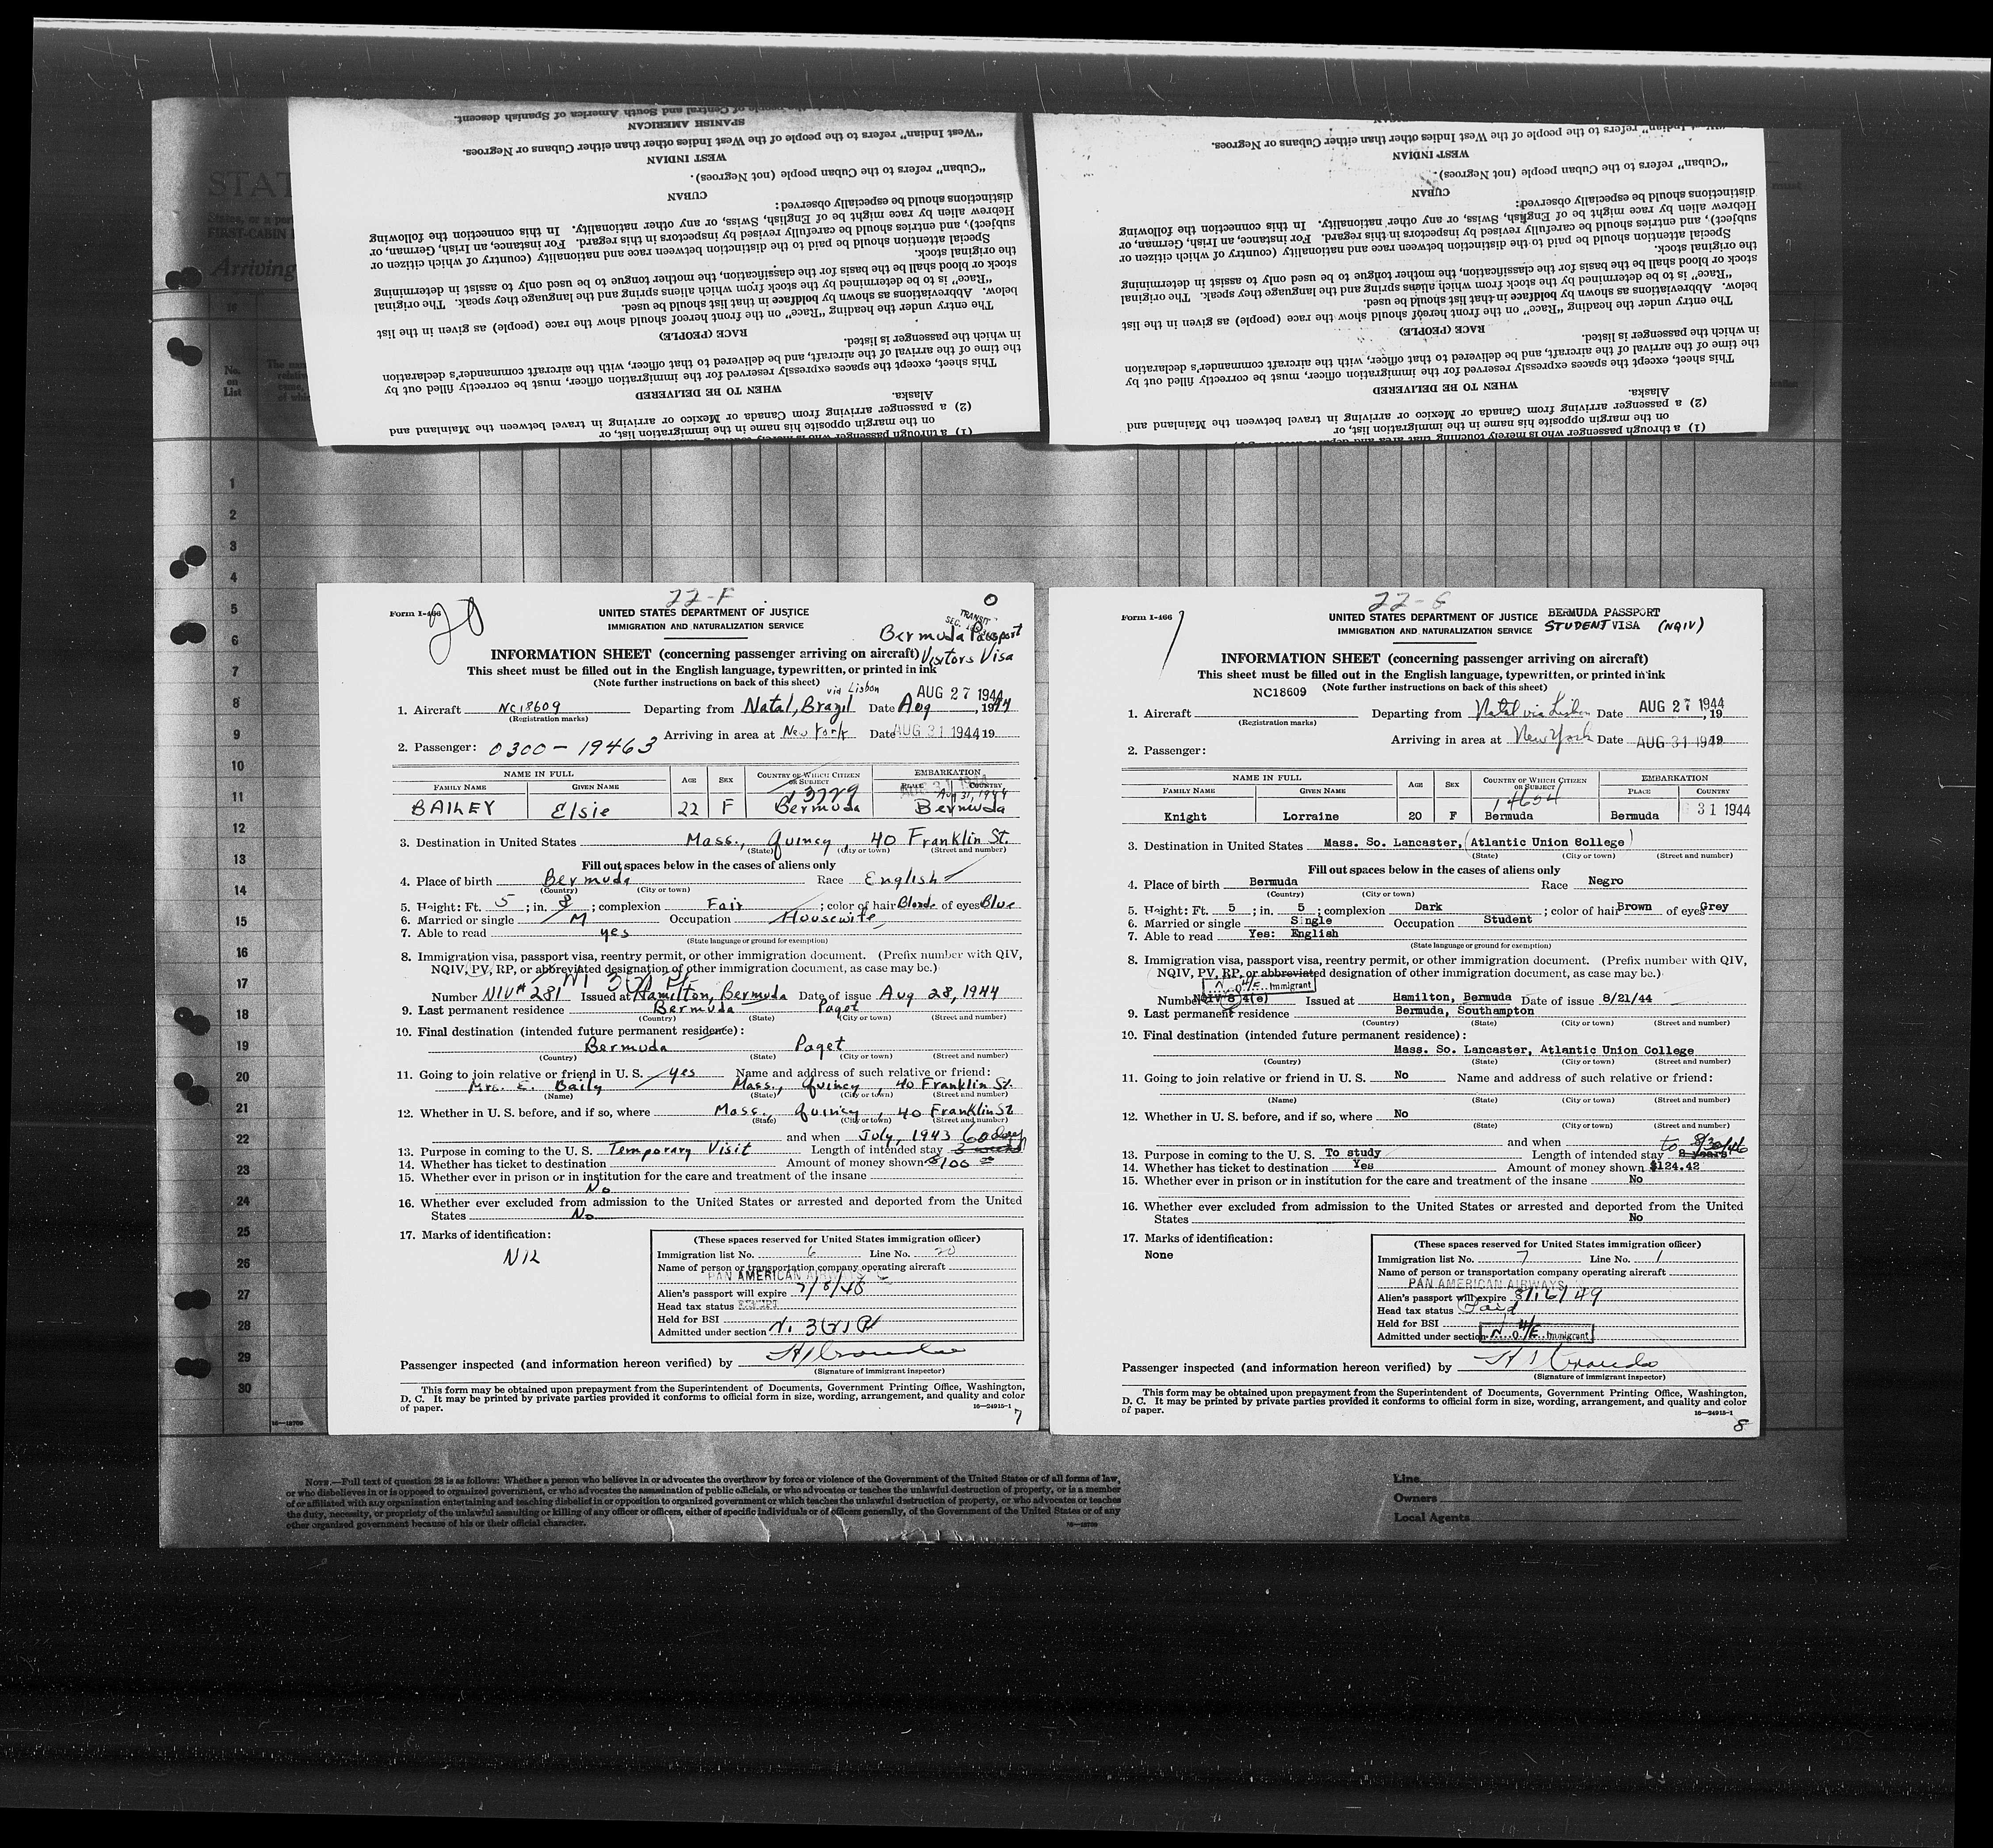 of Central and South America of Spanish descent.
SPANISH AMERICAN
"West Indian" refers to the people of the West Indies other than either Cubans or Negroes.
WEST INDIAN
"Cuban" refers to the Cuban people (not Negroes).
CUBAN
distinctions should be especially observed:
Hebrew alien by race might be of English, Swiss, or any other nationality. In this connection the following
subject), and entries should be carefully revised by inspectors in this regard. For instance, an Irish, German, or
Special attention should be paid to the distinction between race and nationality (country of which citizen or
the original stock.
stock or blood shall be the basis for the classification, the mother tongue to be used only to assist in determining
"Race" is to be determined by the stock from which aliens spring and the language they speak. The original
below. Abbreviations as shown by boldface in that list should be used.
The entry under the heading "Race" on the front hereof should show the race (people) as given in the list
RACE (PEOPLE)
in which the passenger is listed.
the time of the arrival of the aircraft, and be delivered to that officer, with the aircraft commander's declaration
This sheet, except the spaces expressly reserved for the immigration officer, must be correctly filled out by
WHEN TO BE DELIVERED
Alaska.
(2) a passenger arriving from Canada or Mexico or arriving in travel between the Mainland and
on the margin opposite his name in the immigration list, or
"West Indian" refers to the people of the West Indies other than either Cubans or Negroes.
WEST INDIAN
"Cuban" refers to the Cuban people (not Negroes).
CUBAN
distinctions should be especially observed:
Hebrew alien by race might be of English, Swiss, or any other nationality. In this connection the following
subject), and entries should be carefully revised by inspectors in this regard. For instance, an Irish, German, or
Special attention should be paid to the distinction between race and nationality (country of which citizen or
the original stock.
stock or blood shall be the basis for the classification, the mother tongue to be used only to assist in determining
"Race" is to be determined by the stock from which aliens spring and the language they speak. The original
below. Abbreviations as shown by boldface in that list should be used.
The entry under the heading "Race" on the front hereof should show the race (people) as given in the list
RACE (PEOPLE)
in which the passenger is listed.
the time of the arrival of the aircraft, and be delivered to that officer, with the aircraft commander's declaration
This sheet, except the spaces expressly reserved for the immigration officer, must be correctly filled out by
WHEN TO BE DELIVERED
Alaska.
(2) a passenger arriving from Canada or Mexico or arriving in travel between the Mainland and
on the margin opposite his name in the immigration list, or
(1) a through passenger who is merely touching that area and
STAT
FIRST-CABIN
Arriving
No. on List
1
2
3
4
5
6
7
8
9
10
11
12
13
14
15
16
17
18
19
20
21
22
23
24
25
26
27
28
29
30
22-F
Form I-466
20
UNITED STATES DEPARTMENT OF JUSTICE
IMMIGRATION AND NATURALIZATION SERVICE
TRANSIT
Bermuda Passport
Visitors Visa
INFORMATION SHEET (concerning passenger arriving on aircraft)
This sheet must be filled out in the English language, typewritten, or printed in ink
(Note further instructions on back of this sheet)
via Lisbon
1. Aircraft NC18609 Departing from Natal, Brazil Date Aug AUG 27 1944, 1944
(Registration marks)
Arriving in area at New York Date AUG 31 1944 19
2. Passenger: 0300-19463
NAME IN FULL AGE SEX COUNTRY OF WHICH CITIZEN OR SUBJECT EMBARKATION
FAMILY NAME GIVEN NAME PLACE COUNTRY
13779 Aug 31, 1944
BAILEY Elsie 22 F Bermuda Bermuda
3. Destination in United States Mass., Quincy, 40 Franklin St.
(State) (City or town) (Street and number)
Fill out spaces below in the cases of aliens only
4. Place of birth Bermuda Race English
(Country) (City or town)
5. Height: Ft. 5; in. 8; complexion Fair; color of hair Blonde of eyes Blue
6. Married or single M Occupation Housewife
7. Able to read yes
(State language or ground for exemption)
8. Immigration visa, passport visa, reentry permit, or other immigration document. (Prefix number with QIV,
NQIV, PV, RP, or abbreviated designation of other immigration document, as case may be.)
Number NIV# 281 Issued at Hamilton, Bermuda Date of issue Aug 28, 1944
9. Last permanent residence Bermuda Paget
(Country) (State) (City or town) (Street and number)
10. Final destination (intended future permanent residence):
Bermuda Paget
(Country) (State) (City or town) (Street and number)
11. Going to join relative or friend in U. S. yes Name and address of such relative or friend:
Mrs. E. Baily Mass., Quincy, 40 Franklin St.
(Name) (State) (City or town) (Street and number)
12. Whether in U. S. before, and if so, where Mass., Quincy, 40 Franklin St
(State) (City or town) (Street and number)
and when July, 1943 60 days
13. Purpose in coming to the U. S. Temporary Visit Length of intended stay 3 weeks
14. Whether has ticket to destination Amount of money shown $100
15. Whether ever in prison or in institution for the care and treatment of the insane
No
16. Whether ever excluded from admission to the United States or arrested and deported from the United
States No
17. Marks of identification:
NIL
(These spaces reserved for United States immigration officer)
Immigration list No. 6 Line No. 20
Name of person or transportation company operating aircraft
PAN AMERICAN AIRWAYS
Alien's passport will expire 7/8/48
Head tax status
Held for BSI
Admitted under section
Passenger inspected (and information hereon verified) by
(Signature of immigrant inspector)
This form may be obtained upon prepayment from the Superintendent of Documents, Government Printing Office, Washington,
D. C. It may be printed by private parties provided it conforms to official form in size, wording, arrangement, and quality and color
of paper.
16—24915-1
7
22-G
Form I-466
1
UNITED STATES DEPARTMENT OF JUSTICE
IMMIGRATION AND NATURALIZATION SERVICE
BERMUDA PASSPORT
STUDENT VISA (NQIV)
INFORMATION SHEET (concerning passenger arriving on aircraft)
This sheet must be filled out in the English language, typewritten, or printed in ink
(Note further instructions on back of this sheet)
NC18609
1. Aircraft Departing from Natal via Lisbon Date AUG 27 1944, 19
(Registration marks)
Arriving in area at New York Date AUG 31 1944 19
2. Passenger:
NAME IN FULL AGE SEX COUNTRY OF WHICH CITIZEN OR SUBJECT EMBARKATION
FAMILY NAME GIVEN NAME PLACE COUNTRY
14654
Knight Lorraine 20 F Bermuda Bermuda 31 1944
3. Destination in United States Mass. So. Lancaster, (Atlantic Union College)
(State) (City or town) (Street and number)
Fill out spaces below in the cases of aliens only
4. Place of birth Bermuda Race Negro
(Country) (City or town)
5. Height: Ft. 5; in. 5; complexion Dark; color of hair Brown of eyes Grey
6. Married or single Single Occupation Student
7. Able to read Yes: English
(State language or ground for exemption)
8. Immigration visa, passport visa, reentry permit, or other immigration document. (Prefix number with QIV,
NQIV, PV, RP, or abbreviated designation of other immigration document, as case may be.)
Number NQIV 8 4(e) Issued at Hamilton, Bermuda Date of issue 8/21/44
9. Last permanent residence Bermuda, Southampton
(Country) (State) (City or town) (Street and number)
10. Final destination (intended future permanent residence):
Mass. So. Lancaster, Atlantic Union College
(Country) (State) (City or town) (Street and number)
11. Going to join relative or friend in U. S. No Name and address of such relative or friend:
(Name) (State) (City or town) (Street and number)
12. Whether in U. S. before, and if so, where No
(State) (City or town) (Street and number)
and when to 8/30/46
13. Purpose in coming to the U. S. To study Length of intended stay 2 years
14. Whether has ticket to destination Yes Amount of money shown $124.42
15. Whether ever in prison or in institution for the care and treatment of the insane No
16. Whether ever excluded from admission to the United States or arrested and deported from the United
States No
17. Marks of identification:
None
(These spaces reserved for United States immigration officer)
Immigration list No. 7 Line No. 1
Name of person or transportation company operating aircraft
PAN AMERICAN AIRWAYS
Alien's passport will expire 8/16/49
Head tax status Paid
Held for BSI
Admitted under section N. O. 4/E Immigrant
Passenger inspected (and information hereon verified) by
(Signature of immigrant inspector)
This form may be obtained upon prepayment from the Superintendent of Documents, Government Printing Office, Washington,
D. C. It may be printed by private parties provided it conforms to official form in size, wording, arrangement, and quality and color
of paper.
16—24915-1
8
NOTE.—Full text of question 28 is as follows: Whether a person who believes in or advocates the overthrow by force or violence of the Government of the United States or of all forms of law,
or who disbelieves in or is opposed to organized government, or who advocates the assassination of public officials, or who advocates or teaches the unlawful destruction of property, or is a member
of or affiliated with any organization entertaining and teaching disbelief in or opposition to organized government or which teaches the unlawful destruction of property, or who advocates or teaches
the duty, necessity, or propriety of the unlawful assaulting or killing of any officer or officers, either of specific individuals or of officers generally, of the Government of the United States or of any
other organized government because of his or their official character.
Line
Owners
Local Agents